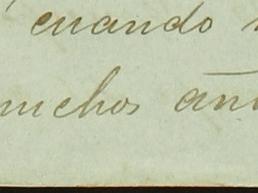 cuando
muchos añ